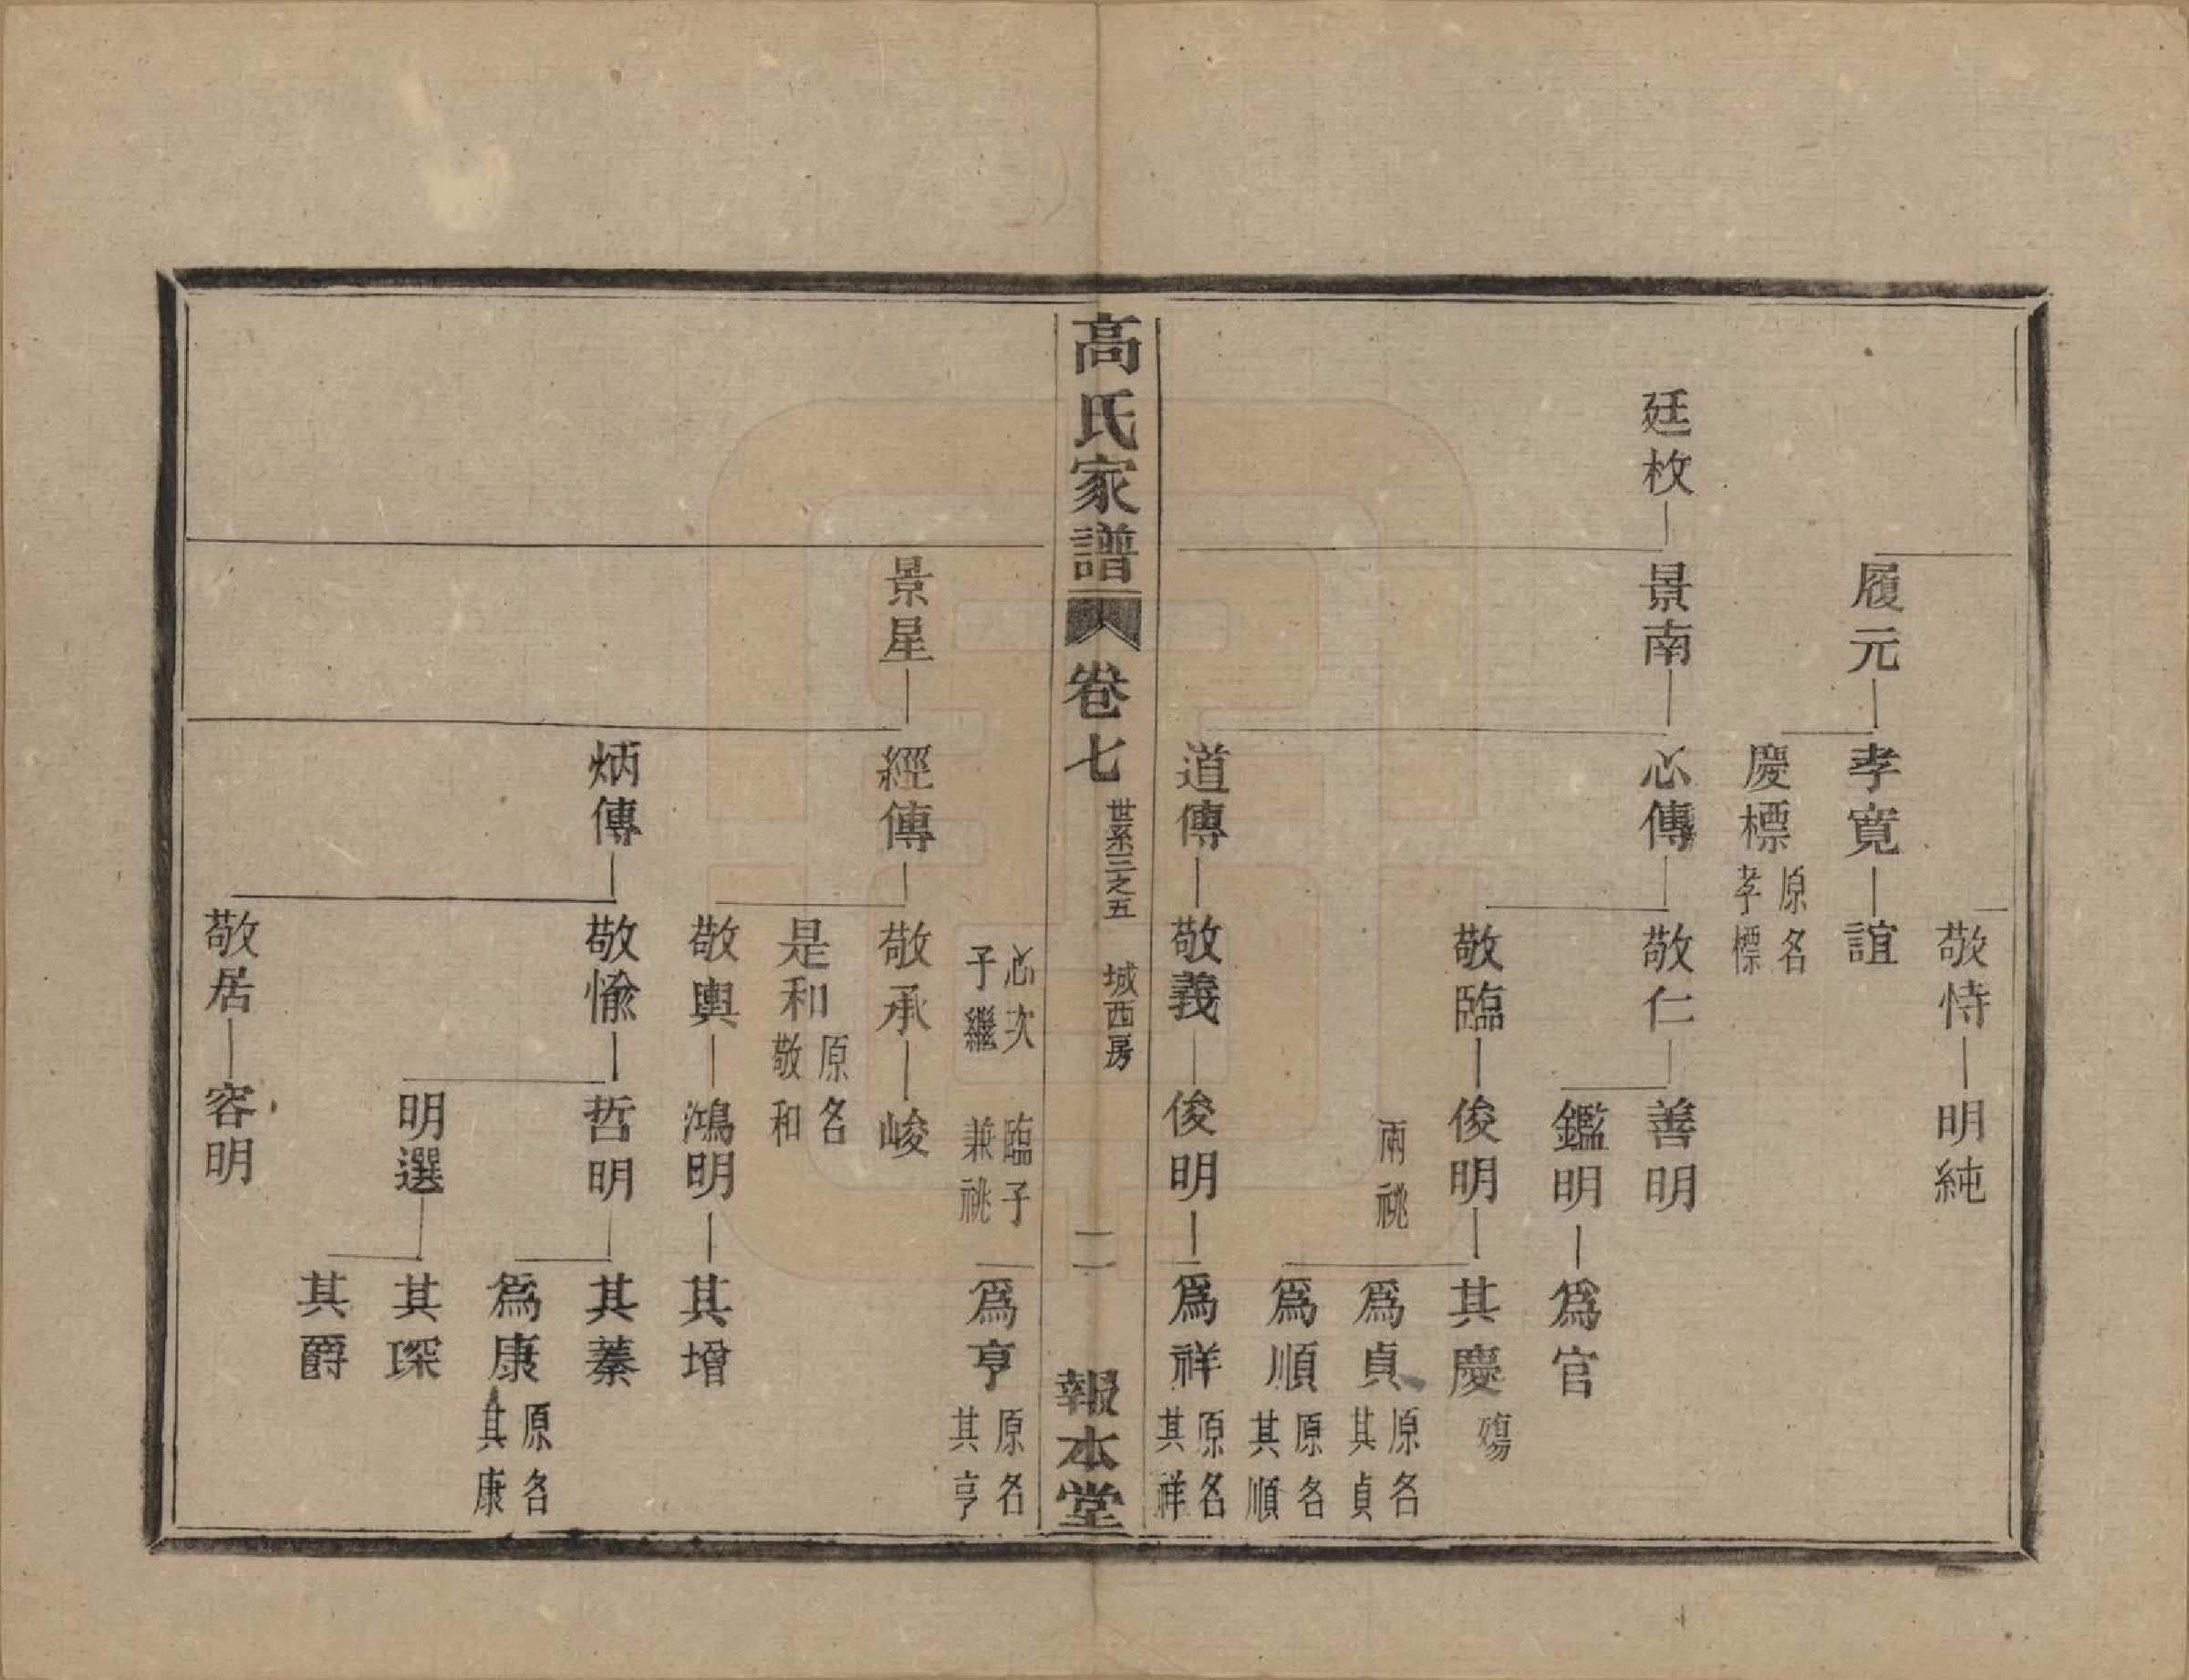 敬恃 明純
履元 孝寛 誼
慶標 原名孝標
廷枚 景南 心傳 敬仁 善明
鑑明 爲官
敬臨 俊明 其慶 殤
兩祧
爲貞 原名其貞
爲順 原名其順
道傳 敬義 俊明 爲祥 原名其祥
高氏家譜 卷七 世系三之五 城西房 二 報本堂
心次子繼 臨子兼祧 爲亨 原名其亨
景星 經傳 敬承 峻
是和 原名敬和
敬輿 鴻明 其增
炳傳 敬愉 哲明 其蓁
爲康 原名其康
明選 其琛
其爵
敬居 容明